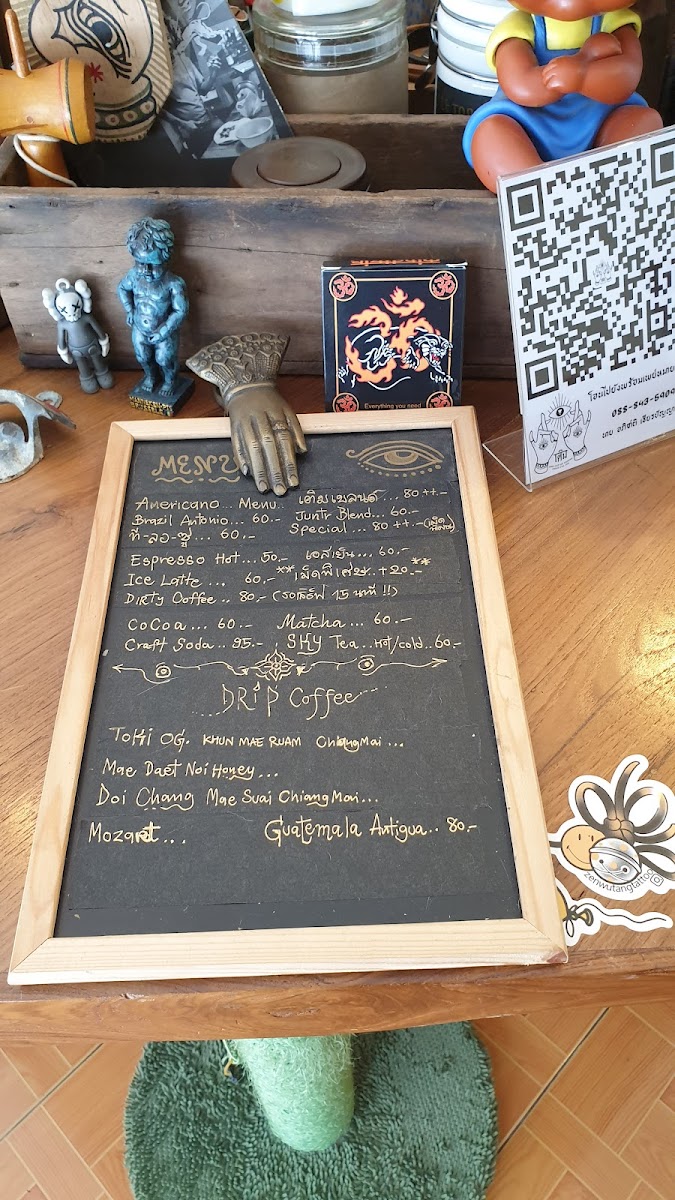 Everything you need
โอนไปยังพร้อมเพย์
055-543-5909
MENU
Americano... Menu.. เติมเบลนด์... 80 ++.-
Brazil Antonio... 60.- Juntr Blend... 60.-
ที-ลอ-ซู... 60.- Special... 80 ++.-
Espresso Hot... 50.- เอสเย็น... 60.-
Ice Latte ... 60.- **เม็ดพิเศษ.. +20.-**
DiRTy Coffee .. 80.- (รอเสิร์ฟ 15 นาที !!)
CoCoa ... 60.- Matcha... 60.-
Craft Soda.. 95.- SKY Tea.. Hot/cold.. 60.-
DRiP Coffee
ToHi OG. KHUN MAE RUAM ChiangMai ...
Mae Daet Noi Honey...
Doi Chang Mae Suai ChiangMai...
Mozart ... Guatemala Antigua.. 80.-
zenwutangtattoo